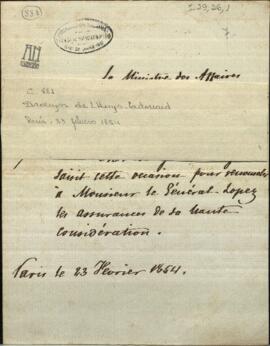 (881)
I-29,26,1
7.
AN
le Ministre des Affaires
C. 881
Drouyn de Lhuys, Edouard
Paris - 23 febrero 1854
saisit cette occasion pour renouveler
à Monsieur le Général Lopez
les assurances de sa haute
considération.
Paris le 23 Février 1854.